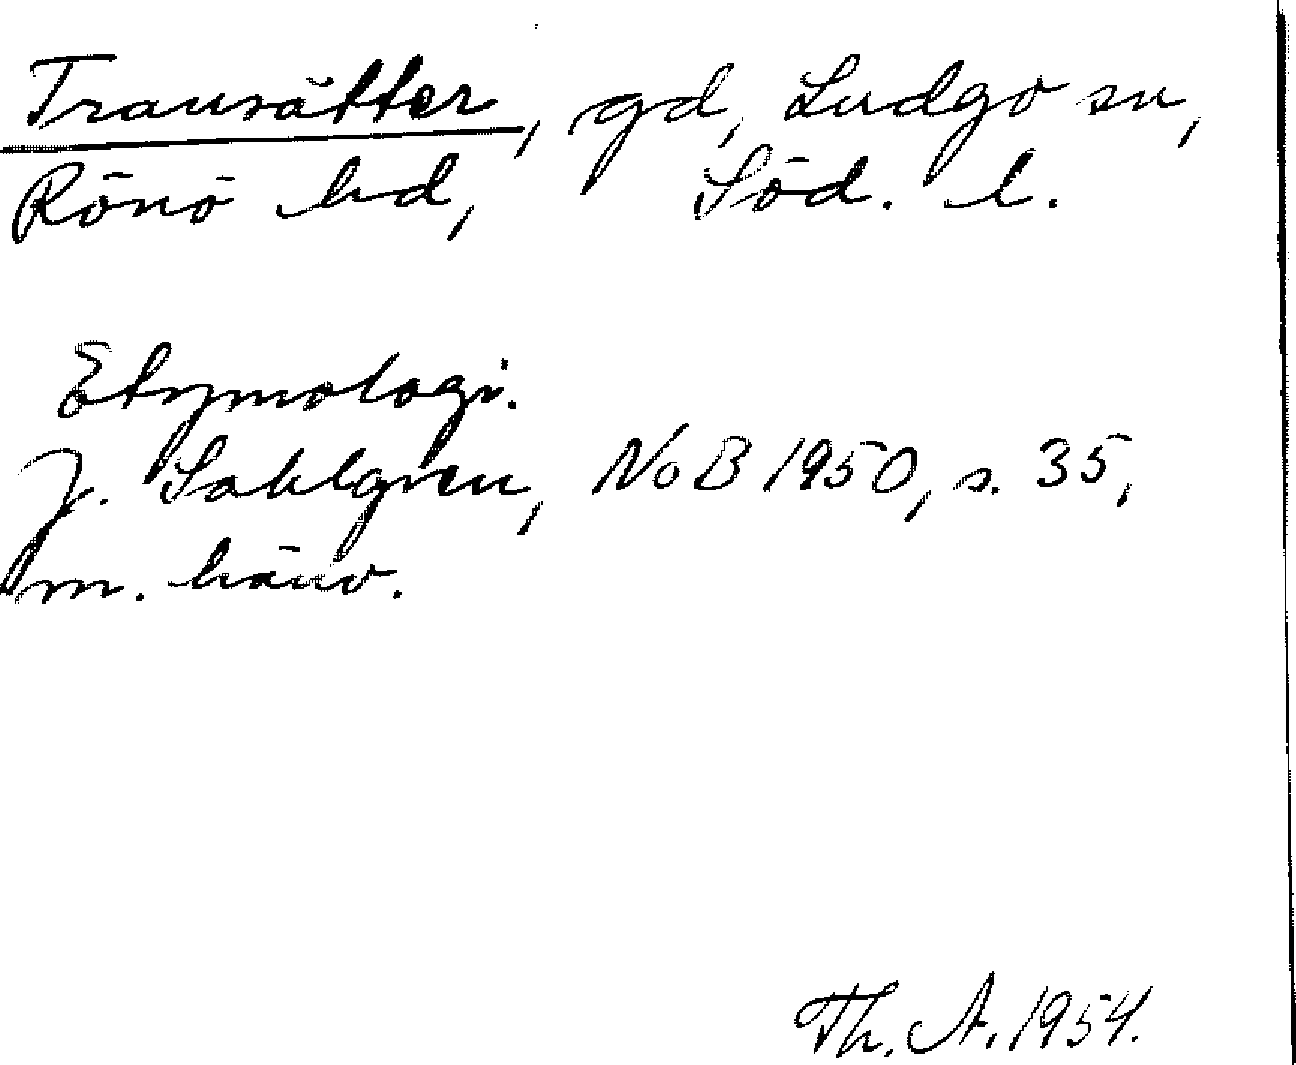 Transätter, gd, Ludgo sn,
Rönö hd, Söd. l.
Etymologi.
J. Sahlgren, NoB 1950, s. 35,
m. hänv.
Th. A. 1954.